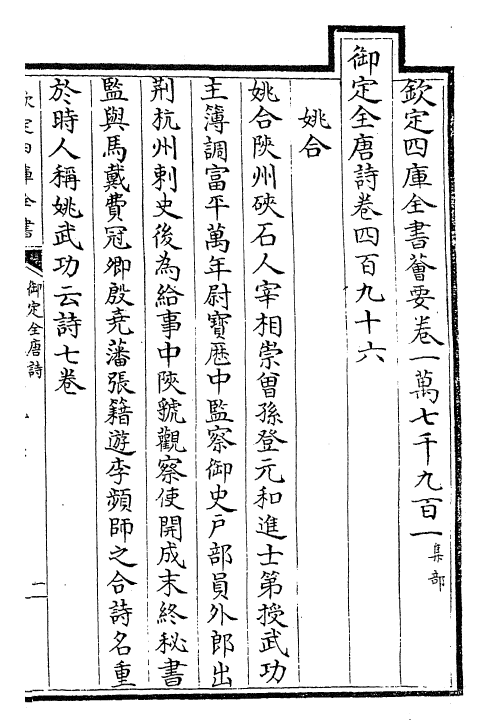 欽定四庫全書薈要卷一萬七千九百一集部
御定全唐詩卷四百九十六
姚合
姚合陝州硤石人宰相崇曾孫登元和進士第授武功
主簿調富平萬年尉寶歷中監察御史戶部員外郎出
荆杭州刺史後為給事中陝虢觀察使開成末終秘書
監與馬戴費冠卿殷堯藩張籍遊李頻師之合詩名重
於時人稱姚武功云詩七卷
欽定四庫全書
御定全唐詩